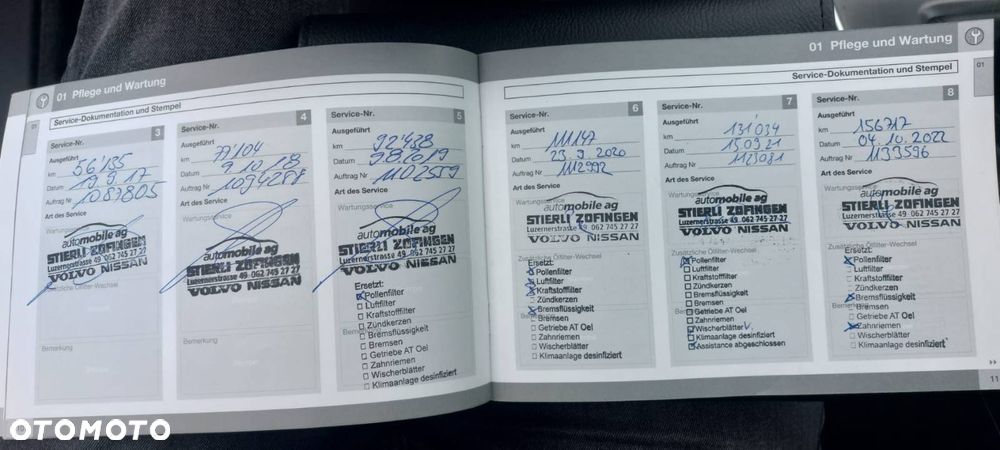 01 Pflege und Wartung
Service-Dokumentation und Stempel
01
Service-Nr. 3
Ausgeführt
km 56'135
Datum 19.9.17
Auftrag Nr 1083805
Art des Service
Wartungsservice
automobile ag
STIERLI ZOFINGEN
Luzernerstrasse 49 062 745 27 27
VOLVO NISSAN
Zusätzliche Ölfilter-Wechsel
Bemerkung
Service-Nr. 4
Ausgeführt
km 77'104
Datum 9.10.18
Auftrag Nr 1094288
Art des Service
Wartungsservice
automobile ag
STIERLI ZOFINGEN
Luzernerstrasse 49 062 745 27 27
VOLVO NISSAN
Bemerkung
Service-Nr. 5
Ausgeführt
km 92'438
Datum 28.10.19
Auftrag Nr 1102559
Art des Service
Wartungsservice
automobile ag
STIERLI ZOFINGEN
Luzernerstrasse 49 062 745 27 27
VOLVO NISSAN
Ersetzt:
Pollenfilter
Luftfilter
Kraftstofffilter
Zündkerzen
Bremsflüssigkeit
Bremsen
Getriebe AT Oel
Zahnriemen
Wischerblätter
Klimaanlage desinfiziert
01 Pflege und Wartung
Service-Dokumentation und Stempel
01
Service-Nr. 6
Ausgeführt
km 111'147
Datum 23.9.2020
Auftrag Nr 112992
Art des Service
Wartungsservice
automobile ag
STIERLI ZOFINGEN
Luzernerstrasse 49 062 745 27 27
VOLVO NISSAN
Zusätzliche Ölfilter-Wechsel
Ersetzt:
Pollenfilter
Luftfilter
Kraftstofffilter
Zündkerzen
Bremsflüssigkeit
Bremsen
Getriebe AT Oel
Zahnriemen
Wischerblätter
Klimaanlage desinfiziert
Service-Nr. 7
Ausgeführt
km 131'034
Datum 150921
Auftrag Nr 1123081
Art des Service
Wartungsservice
automobile ag
STIERLI ZOFINGEN
Luzernerstrasse 49 062 745 27 27
VOLVO NISSAN
Zusätzliche Ölfilter-Wechsel
Pollenfilter
Luftfilter
Kraftstofffilter
Zündkerzen
Bremsflüssigkeit
Bremsen
Getriebe AT Oel
Zahnriemen
Wischerblätter V.
Klimaanlage desinfiziert
Assistance abgeschlossen
Service-Nr. 8
Ausgeführt
km 156717
Datum 04.10.2022
Auftrag Nr 1133596
Art des Service
Wartungsservice
automobile ag
STIERLI ZOFINGEN
Luzernerstrasse 49 062 745 27 27
VOLVO NISSAN
Zusätzliche Ölfilter-Wechsel
Ersetzt:
Pollenfilter
Luftfilter
Kraftstofffilter
Zündkerzen
Bremsflüssigkeit
Bremsen
Getriebe AT Oel
Zahnriemen
Wischerblätter
Klimaanlage desinfiziert
11
OTOMOTO